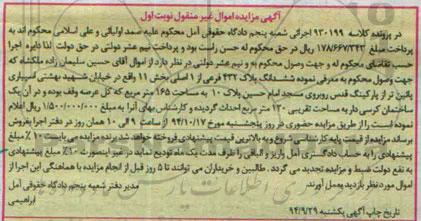 آگهی مزایده اموال غیر منقول نوبت اول
در پرونده کلاسه ۹۳۰۱۹۹ اجرائی شعبه پنجم دادگاه حقوقی آمل محکوم علیه صمد اولیائی و علی اسلامی محکوم اند به
پرداخت مبلغ ۱۷۸/۶۶۷/۳۴۳ ریال در حق محکوم له حسن راست بود و پرداخت نیم عشر دولتی در حق دولت لذا دایره اجرا
حسب تقاضای محکوم له و جهت وصول محکوم به و نیم عشر دولتی در نظر دارد از اموال آقای حسین سلیمان زاده ملکشاه که
جهت وصول محکوم به معرفی نموده ششدانگ پلاک ۴۳۷ فرعی از ۱ اصلی بخش ۱۱ واقع در خیابان شهید بهشتی اسپیاری
پائین تر از پارکینگ قدس روبروی مسجد امام حسین پلاک ۱۰ به مساحت ۱۶۵ متر مربع که کل عرصه وقف بوده و در آن یک
ساختمان کرسی دار به مساحت تقریبی ۱۳۰ متر مربع احداث گردیده و کارشناس بهای آنرا به مبلغ ۱/۵۰۰/۰۰۰/۰۰۰ ریال اعلام
نموده است را از طریق مزایده حضوری در روز پنجشنبه مورخ ۹۴/۱۰/۱۷ از ساعت ۹ الی ۱۰ همان روز در دفتر اجرا بفروش
برساند مزایده از قیمت پایه کارشناسی شروع و به بالاترین قیمت پیشنهادی فروخته خواهد شد برنده مزایده می بایست ۱۰٪ مبلغ
پیشنهادی را به حساب دادگستری آمل واریز و الباقی را ظرف مدت یک ماه تودیع نماید در غیر اینصورت ۱۰٪ مبلغ پیشنهادی
به نفع دولت ضبط و مزایده تجدید می گردد . طالبین و خریداران می توانند تا ۵ روز قبل از انجام مزایده با هماهنگی این اجرا از
اموال مورد نظر بازدید بعمل آورند
مدیر دفتر شعبه پنجم دادگاه حقوقی آمل
ابراهیمی
تاریخ چاپ آگهی یکشنبه ۹۴/۹/۲۹